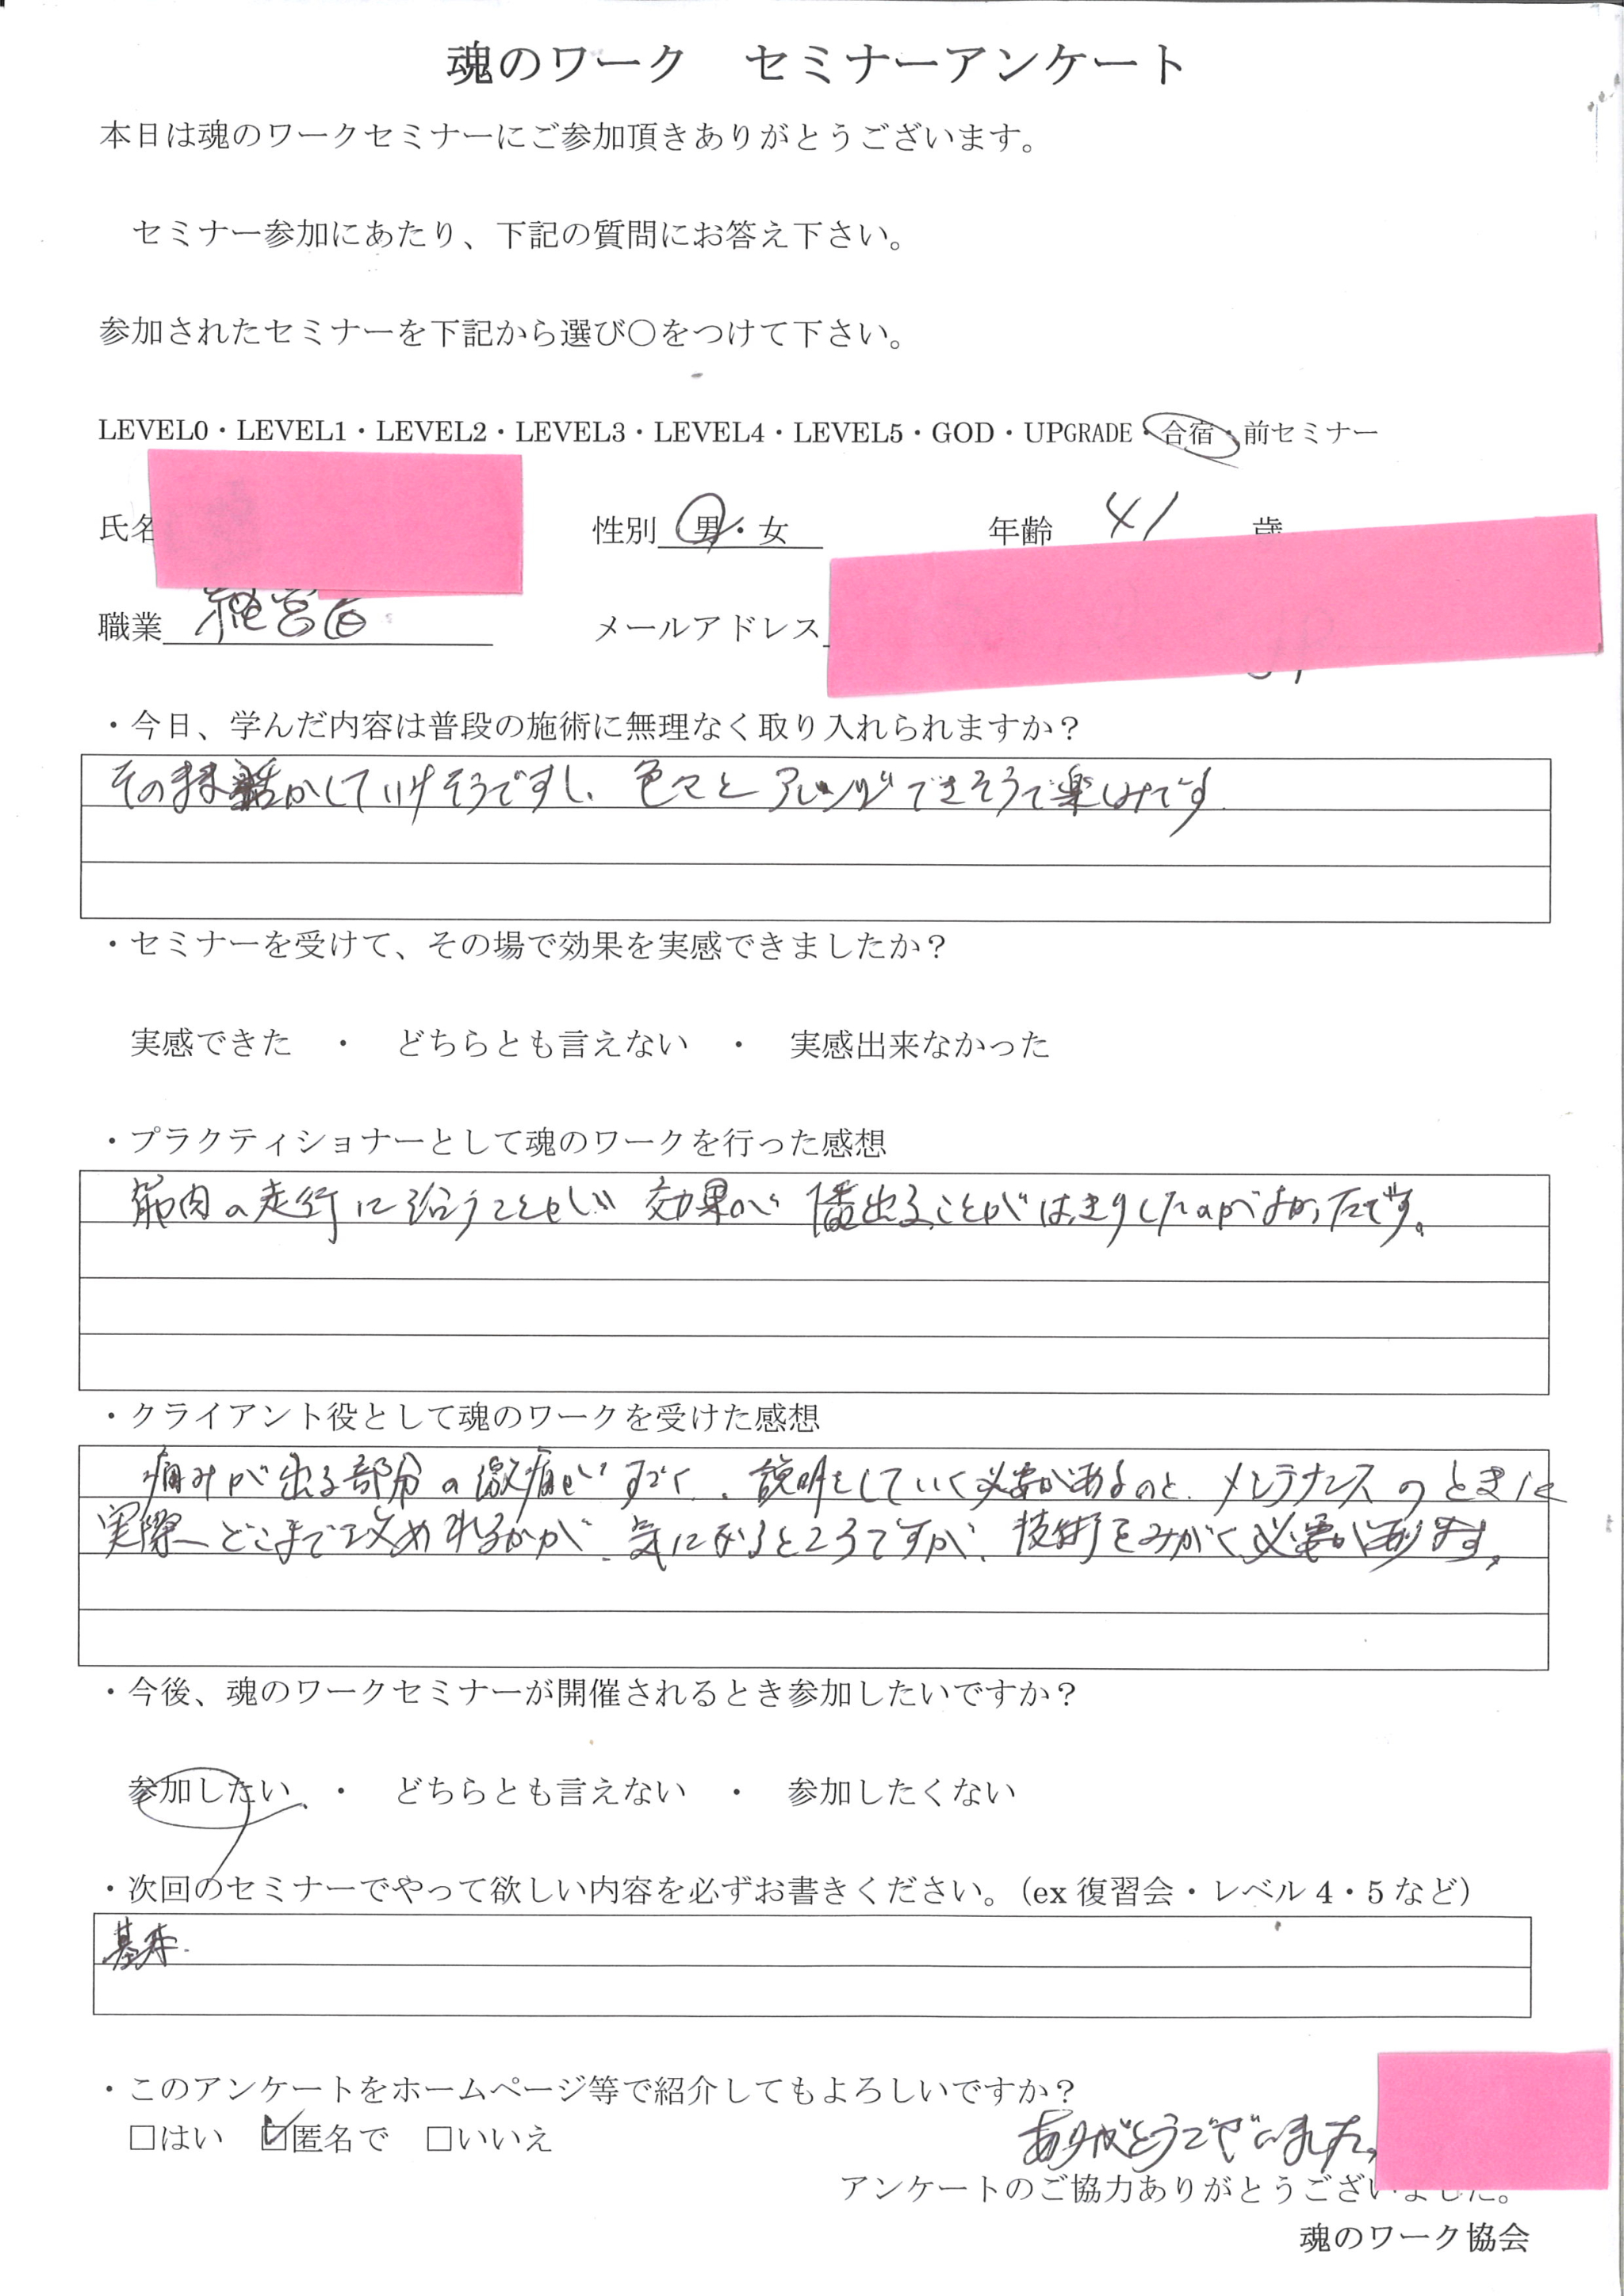 魂のワーク　セミナーアンケート
本日は魂のワークセミナーにご参加頂きありがとうございます。
セミナー参加にあたり、下記の質問にお答え下さい。
参加されたセミナーを下記から選び〇をつけて下さい。
LEVEL0・LEVEL1・LEVEL2・LEVEL3・LEVEL4・LEVEL5・GOD・UPGRADE・合宿・前セミナー
氏名　性別 男・女　年齢 41 歳
職業 経営者　メールアドレス
・今日、学んだ内容は普段の施術に無理なく取り入れられますか？
そのまま活かしていけそうですし、色々とアレンジできそうで楽しみです
・セミナーを受けて、その場で効果を実感できましたか？
実感できた　・　どちらとも言えない　・　実感出来なかった
・プラクティショナーとして魂のワークを行った感想
筋肉の走行に沿うことが効果が1番出ることがはっきりしたのがよかったです。
・クライアント役として魂のワークを受けた感想
痛みが出る部分の激痛がすごく、説明をしていく必要があるのと、メンテナンスのときは
実際どこまで攻められるかが、気になるところですが、技術をみがく必要があります。
・今後、魂のワークセミナーが開催されるとき参加したいですか？
参加したい　・　どちらとも言えない　・　参加したくない
・次回のセミナーでやって欲しい内容を必ずお書きください。（ex 復習会・レベル 4・5 など）
基本.
・このアンケートをホームページ等で紹介してもよろしいですか？
□はい　☑匿名で　□いいえ
ありがとうございました。
アンケートのご協力ありがとうございました。
魂のワーク協会